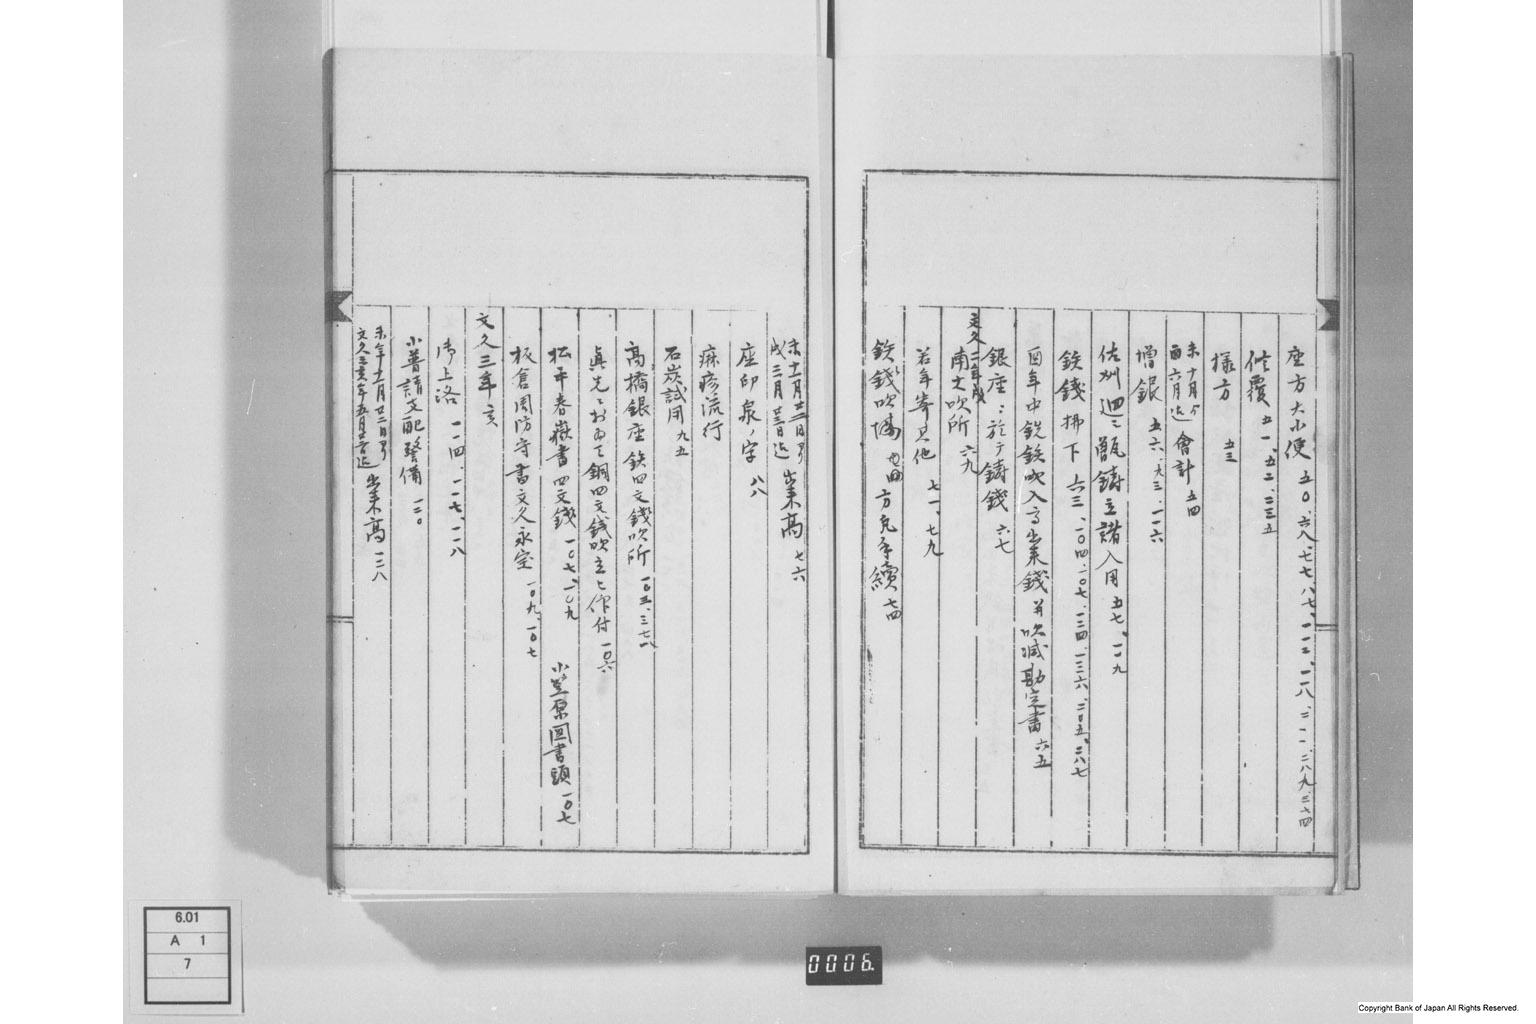 座方大小便 五〇、六八、七七、八七、一一二、一一八、二一一、二八九、三一四
修覆 五一、五二、二三五
様方 五三
未十月ゟ
酉六月迄 會計 五四
増銀 五六、九三、一一六
佐州廻シ甑鋳立諸入用 五七、一一九
鉄銭拂下 六三、一〇四、一〇七、一三四、一三六、二〇五、二八七
酉年中銑鉄吹入高出来銭并吹減勘定書 六五
銀座ニ於テ鋳銭 六七
文久二年戌
南大吹所 六九
若年寄其他 七一、七九
鉄銭吹場 方 手續 七四
未十一月廿二日ゟ
戌三月廿三日迄 出来高 七六
座印泉ノ字 八八
麻疹流行
石炭試用 九五
高橋銀座鉄四文銭吹所 一〇三、三七八
真先ニおゐて銅四文銭吹立ヒ作付 一〇六
松平春嶽書四文銭 一〇七、一〇九 小笠原図書頭 一〇七
板倉周防守書文久永宝 一〇九、一〇七
文久三年亥
御上洛 一一四、一一七、一一八
小普請支配警備 一二〇
未年十一月廿二日ゟ
文久三亥年五月廿五日迄 出来高 一二八
6.01
A 1
7
0006.
Copyright Bank of Japan All Rights Reserved.